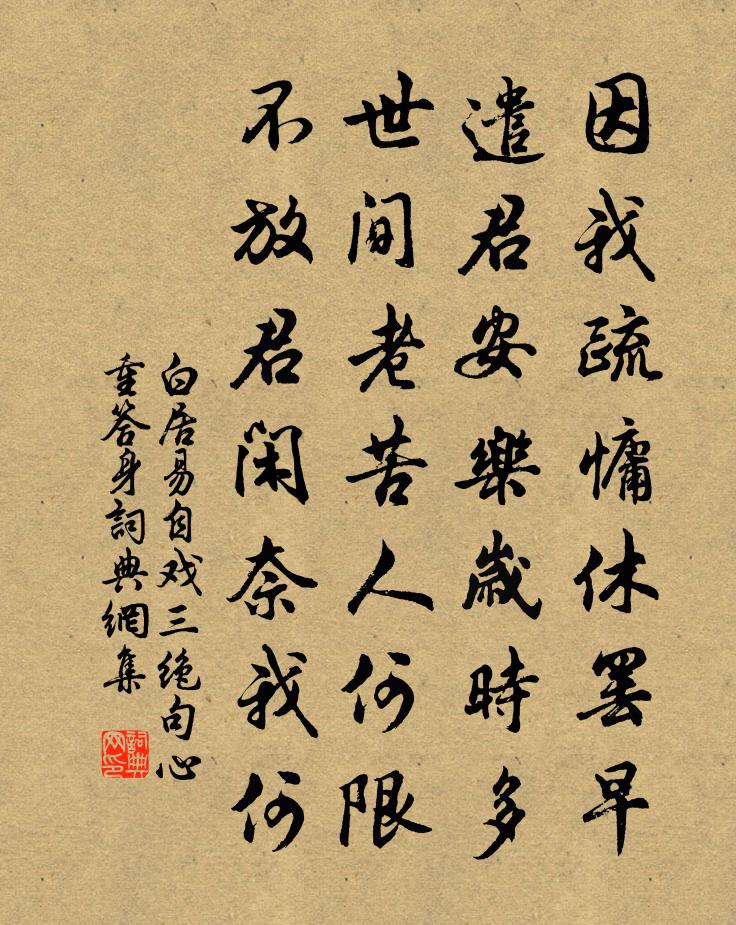 因我疏慵休罷早
遣君安樂歲時多
世间老苦人何限
不放君闲奈我何
白居易自戏三绝句心
重答身詞典網集
詞典
网印